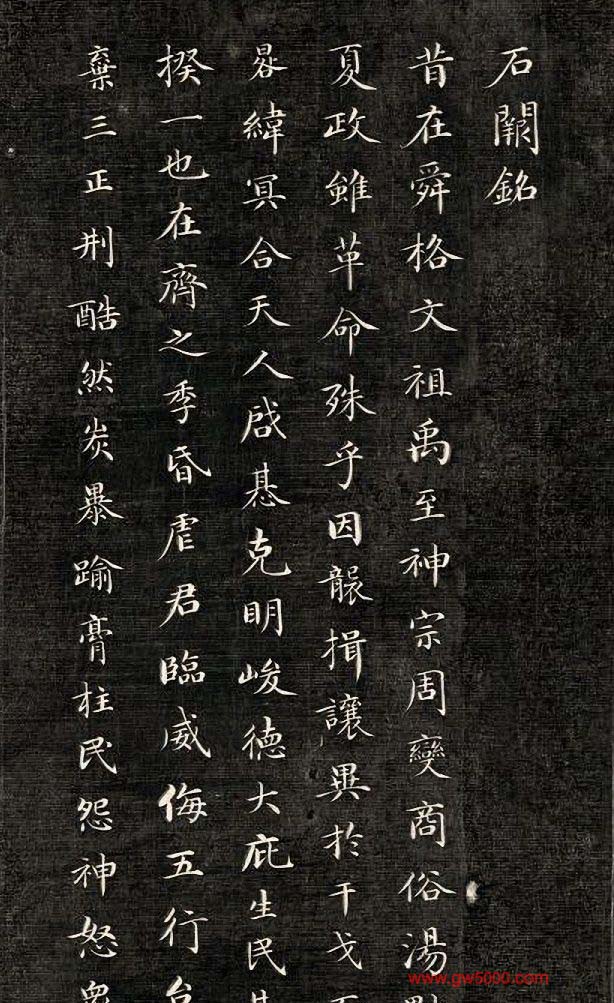 石闕銘
昔在舜格文祖禹至神宗周變商俗湯
夏政雖革命殊乎因襲揖讓異於干戈
晷緯冥合天人啟惎克明峻德大庇生民
揆一也在齊之季昏虐君臨威侮五行
棄三正刑酷然炭暴踰膏柱民怨神怒
www.gw5000.com